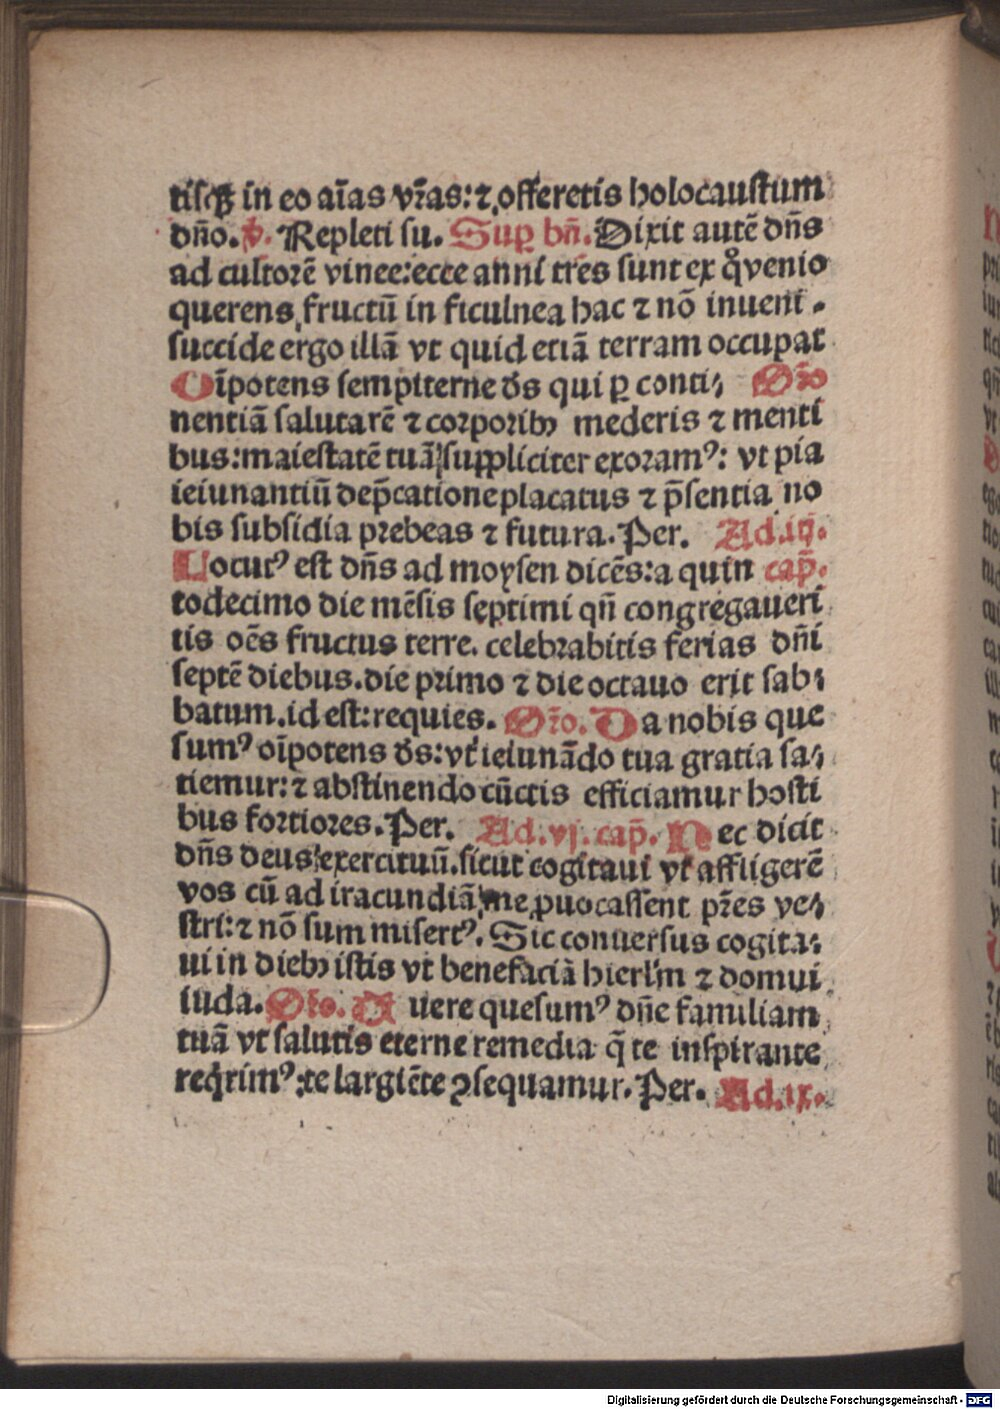 tisqꝫ in eo aīas vr̄as: ⁊ offeretis holocaustum
dn̄o. ꝟ. Repleti su. Suꝑ bn̄. Dixit autē dn̄s
ad cultorē vinee: ecce anni tres sunt ex qͦ venio
querens fructū in ficulnea hac ⁊ nō inueni.
succide ergo illā vt quid etiā terram occupat
Oīpotens sempiterne ds̄ qui ꝑ conti⸗ Or̄o
nentiā salutarē ⁊ corporibꝰ mederis ⁊ menti
bus: maiestatē tuā suppliciter exoramꝰ: vt pia
ieiunantiū dep̄catione placatus ⁊ p̄sentia no
bis subsidia prebeas ⁊ futura. Per. Ad .iij.
Locutꝰ est dn̄s ad moysen dicēs: a quin cap̄.
todecimo die mēsis septimi qn̄ congregaueri
tis oēs fructus terre. celebrabitis ferias dn̄i
septē diebus. die primo ⁊ die octauo erit sab⸗
batum. id est: requies. Or̄o. Da nobis que
sumꝰ oīpotens ds̄: vt ieiunādo tua gratia sa⸗
tiemur: ⁊ abstinendo cūctis efficiamur hosti
bus fortiores. Per. Ad .vj. cap̄. Hec dicit
dn̄s deus exercituū. sicut cogitaui vt affligerē
vos cū ad iracundiā me ꝓuocassent pr̄es ve⸗
stri: ⁊ nō sum misertꝰ. Sic conuersus cogita⸗
ui in diebꝰ istis vt benefaciā hierl̄m ⁊ domui
iuda. Or̄o. A uere quesumꝰ dn̄e familiam
tuā vt salutis eterne remedia q̄ te inspirante
reqͥrimꝰ: te largiēte ꝯsequamur. Per. Ad .ix.
Digitalisierung gefördert durch die Deutsche Forschungsgemeinschaft - DFG